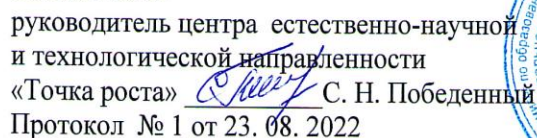 руководитель центра естественно-научной
и технологической направленности
«Точка роста» ____________ С. Н. Победенный
Протокол № 1 от 23. 08. 2022
по образова